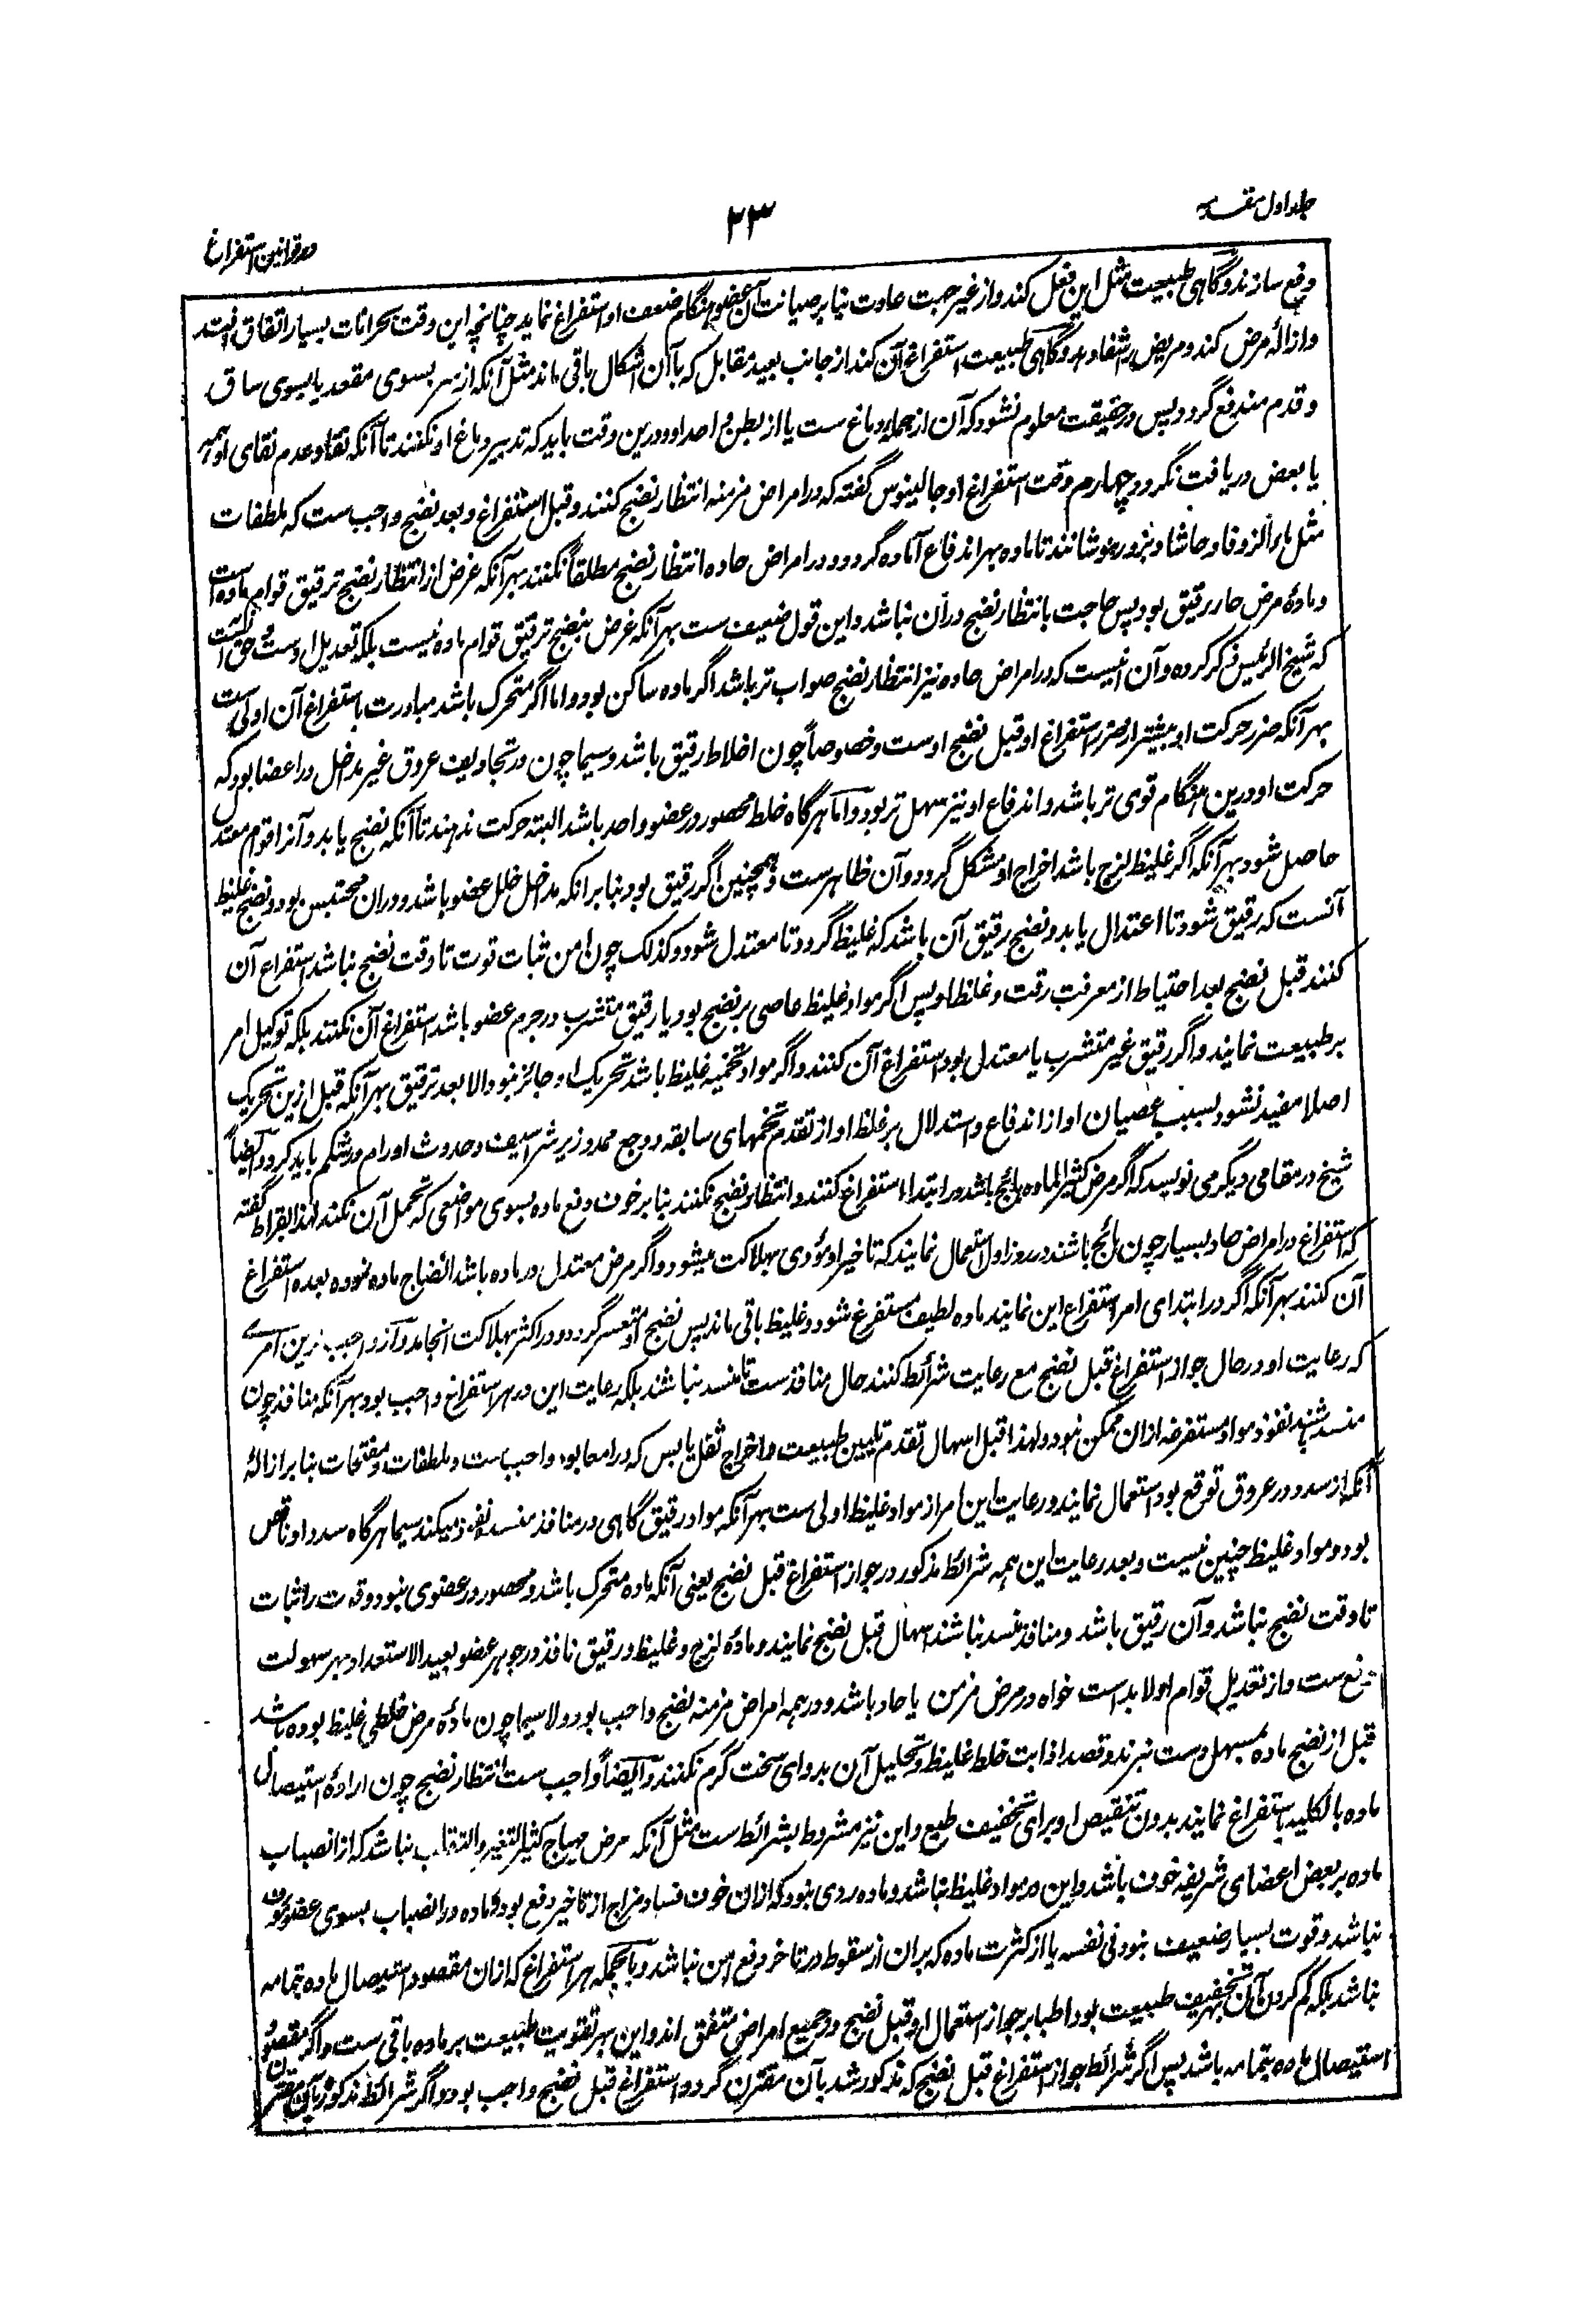 جلد اول مقدمه
۲۳
در قوانین استفراغ
دفع سازند و گاهی طبیعت مثل این فعل کند و از غیر جهت عادت بنا بر صیانت آن عضو هنگام ضعف او استفراغ نماید چنانچه این وقت بحرانات بسیار اتفاق افتد
و ازالهٔ مرض کند و مریض را شفا دهد و گاهی طبیعت استفراغ آن کند از جانب بعید مقابل که با آن اشکال باقی ماند مثل آنکه از سر بسوی مقعد یا بسوی ساق
و قدم مندفع گردد پس در حقیقت معلوم نشود که آن از جمله دماغ ست یا از بطن واحد او و درین وقت باید که تدبیر دماغ او نکنند تا آنکه نقا و عدم نقای او همه
یا بعض دریافت نگردد چهارم وقت استفراغ او جالینوس گفته که در امراض مزمنه انتظار نضج کنند و قبل استفراغ و بعد نضج واجب ست که ملطفات
مثل ماء الزوفا و حاشا و بزور بنوشانند تا ماده بهر اندفاع آماده گردد و در امراض حاده انتظار نضج مطلقاً نکنند بهر آنکه غرض از انتظار نضج ترقیق قوام ماده است
و مادهٔ مرض حار رقیق بود پس حاجت بانتظار نضج در آن نباشد و این قول ضعیف ست بهر آنکه غرض بنضج ترقیق قوام ماده نیست بلکه تعدیل اوست و حق آنست
که شیخ الرئیس ذکر کرده و آن اینست که در امراض حاده نیز انتظار نضج صواب تر باشد اگر ماده ساکن بود و اما اگر متحرک باشد مبادرت باستفراغ آن اولی ست
بهر آنکه ضرر حرکت او بیشتر از ضرر استفراغ او قبل نضج اوست و خصوصاً چون اخلاط رقیق باشد و سیما چون در تجاویف عروق غیر مداخل در اعضا بود که
حرکت او درین هنگام قوی تر باشد و اندفاع او نیز سهل تر بود و اما هرگاه خلط محصور در عضو واحد باشد البته حرکت ندهند تا آنکه نضج یابد و آنرا قوام معتدل
حاصل شود بهر آنکه اگر غلیظ لزج باشد اخراج او مشکل گردد و آن ظاهرست و همچنین اگر رقیق بود بنا بر آنکه مداخل خلل عضو باشد و در آن محتبس بود و نضج غلیظ
آنست که رقیق شود تا اعتدال یابد و نضج رقیق آن باشد که غلیظ گردد تا معتدل شود و کذلک چون امن ثبات قوت تا وقت نضج نباشد استفراغ آن
کنند قبل نضج بعد احتیاط از معرفت رقت و غلظ او پس اگر مواد غلیظ عاصی بر نضج بود یا رقیق متشرب در جرم عضو باشد استفراغ آن نکنند بلکه توکیل امر
بر طبیعت نمایند و اگر رقیق غیر متشرب یا معتدل بود استفراغ آن کنند و اگر مواد تخمیه غلیظ باشد تحریک او جائز نبود الا بعد ترقیق بهر آنکه قبل ازین تحریک
اصلا مفید نشود بسبب عصیان او از اندفاع و استدلال بر غلظ او از تقدم تخمهای سابقه و وجع ممدد زیر شراسیف و حدوث اورام در شکم باید کرد و ایضاً
شیخ در مقامی دیگر می نویسد که اگر مرض کثیر الماده هائج باشد در ابتدا استفراغ کنند و انتظار نضج نکنند بنا بر خوف دفع ماده بسوی مواضعی که تحمل آن نکند لهذا بقراط گفته
که استفراغ در امراض حاد بسیار چون هائج باشند در روز اول استعمال نمایند که تاخیر او مؤدی بهلاکت میشود و اگر مرض معتدل در ماده باشد انضاج ماده نموده بعده استفراغ
آن کنند بهر آنکه اگر در ابتدای امر استفراغ این نمایند ماده لطیف مستفرغ شود و غلیظ باقی ماند پس نضج او متعسر گردد و در اکثر بهلاکت انجامد و از واجب ترین امرے
که رعایت او در حال جواز استفراغ قبل نضج مع رعایت شرائط کنند حال منافذ ست تا منسد نباشند بلکه رعایت این در هر استفراغ واجب بود بهر آنکه منافذ چون
منسد شنید نفوذ مواد مستفرغه از ان ممکن نبود و لهذا قبل اسهال تقدم تلیین طبیعت و اخراج ثفل یابس که در امعا بود واجب ست و ملطفات و مفتحات بنا بر ازالهٔ
آنکه از سدد در عروق توقع بود استعمال نمایند و رعایت این امر از مواد غلیظ اولی ست بهر آنکه مواد رقیق گاهی در منافذ منسد نفوذ میکند سیما هرگاه سدد او ناقص
بود و مواد غلیظ چنین نیست و بعد رعایت این همه شرائط مذکور در جواز استفراغ قبل نضج یعنی آنکه ماده متحرک باشد و محصور در عضوی نبود و قوت را ثبات
تا وقت نضج نباشد و آن رقیق باشد و منافذ منسد نباشند اسهال قبل نضج نمایند و مادهٔ لزج و غلیظ و رقیق نافذ در جوهر عضو بعید الاستعداد بهر سهولت
دفع ست و از تعدیل قوام او لابد است خواه در مرض مزمن یا حاد باشد و در همه امراض مزمنه نضج واجب بود و لا سیما چون مادهٔ مرض خلطی غلیظ بوده باشد
قبل از نضج ماده مسهل دست نبرند و قصد اذابت خلط غلیظ و تحلیل آن بدوای سخت گرم نکنند و ایضاً واجب ست انتظار نضج چون ارادهٔ استیصال
ماده بالکلیه باستفراغ نمایند بدون تنقیص او برای تخفیف طبع و این نیز مشروط بشرائط ست مثل آنکه مرض مهیاج کثیر التغیر و التقلب نباشد که از انصباب
ماده بر بعض اعضای شریفه خوف باشد و این در مواد غلیظ نباشد و ماده ردی نبود که از ان خوف فساد مزاج از تاخیر دفع بود و ماده در انصباب بسوی عضو
نباشد و قوت بسیار ضعیف نبود فی نفسه یا از کثرت ماده که بر ان از سقوط در تاخر دفع امن نباشد و بالجمله هر استفراغ که از ان مقصود استیصال ماده بتمامه
نباشد بلکه کم کردن آن بهر تخفیف طبیعت بود اطبا بر جواز استعمال او قبل نضج در جمیع امراض متفق اند و این بهر تقویت طبیعت بر ماده باقی ست و اگر مقصود
استیصال ماده بتمامه باشد پس اگر شرائط جواز استفراغ قبل نضج که مذکور شد بآن مقترن گردد استفراغ قبل نضج واجب بود و اگر شرائط مذکوره بآن مقترن